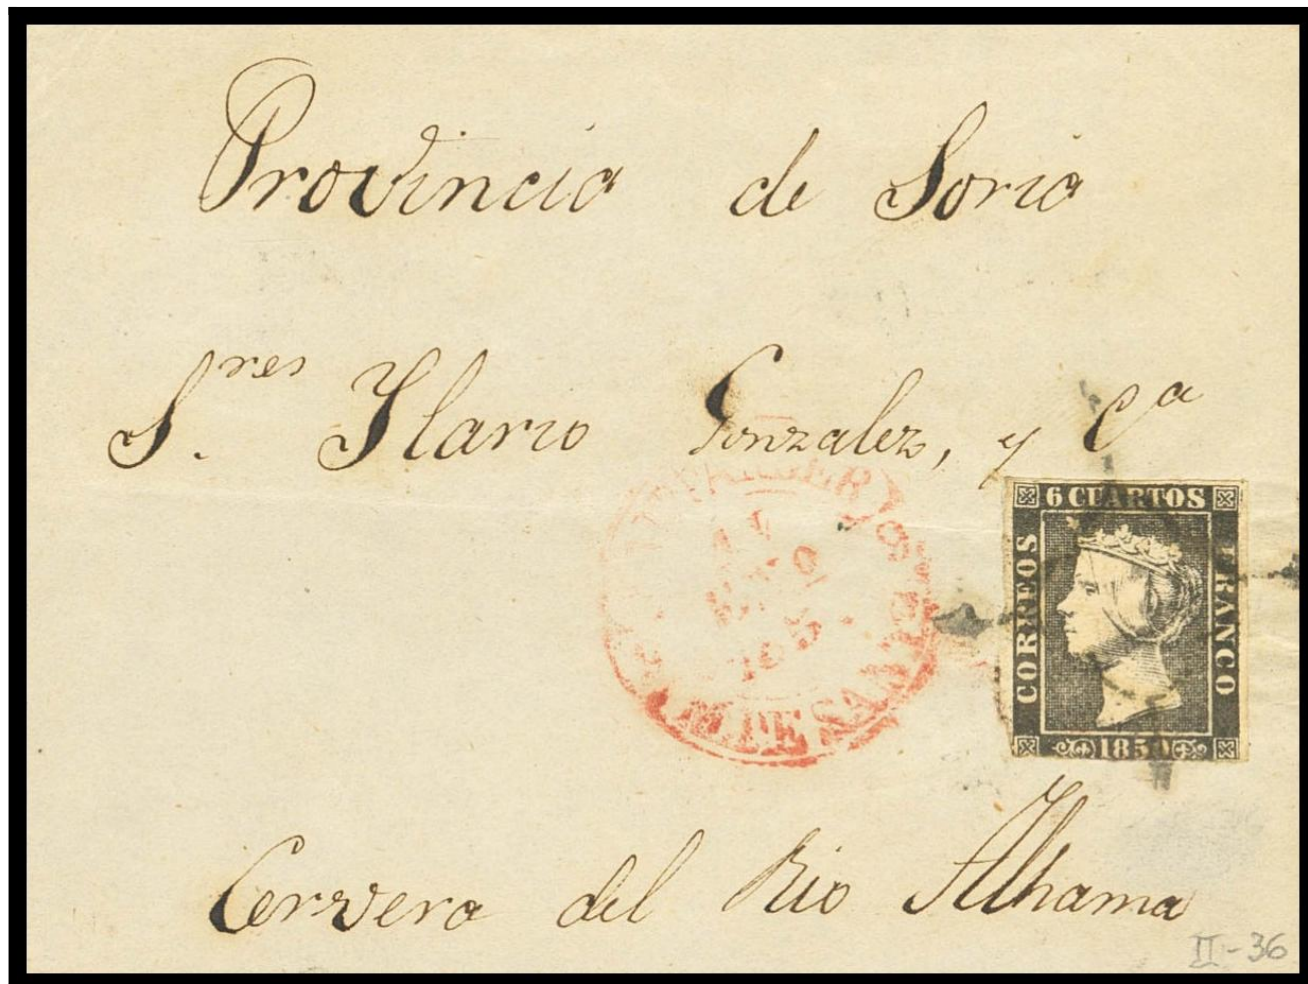 Provincia de Soria
S.res Ylario Gonzalez, y Cª
6 CUARTOS
CORREOS
FRANCO
1850
M. PE SANT
Cervera del Rio Alhama
II-36